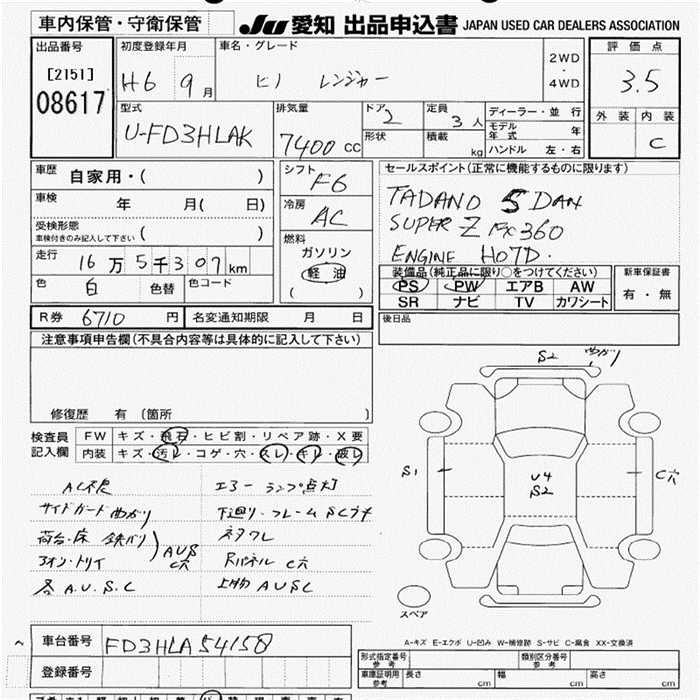 車内保管・守衛保管 JU 愛知 出品申込書 JAPAN USED CAR DEALERS ASSOCIATION
出品番号 初度登録年月 車名・グレード 2WD・4WD 評価点
[2151] H6 9月 ヒノ レンジャー 3.5
08617 外装 内装
型式 排気量 ドア 定員 ディーラー・並行
U-FD3HLAK 7400 CC 2 3人 モデル年式 年 C
形状 積載 kg ハンドル 左・右
車歴 自家用・( ) シフト F6 セールスポイント(正常に機能するものに限ります)
車検 年 月( 日) 冷房 AC TADANO 5 DAN
受検形態 ( ) SUPER Z FX360
車検付きのみ記入して下さい 燃料 ENGINE H07D.
走行 16万5千307km ガソリン 装備品(純正品に限り○をつけてください) 新車保証書
色 白 色替 色コード 軽油 PS PW エアB AW 有・無
( ) SR ナビ TV カワシート
R券 6710円 名変通知期限 月 日 後日品
注意事項申告欄(不具合内容等は具体的に記入して下さい)
修復歴 有 (箇所 )
検査員記入欄 FW キズ・飛石・ヒビ割・リペア跡・X要
内装 キズ・汚レ・コゲ・穴・スレ・キレ・破レ
AC不良 エラーランプ点灯
サイドガード曲がり 下廻り・フレームSCプチ
荷台・床 鉄バリ AUS C穴
アオリ・トリイ Rパネル C穴
各A.U.S.C 上物AUSC
S2 曲がり
S1 U4 S2 C穴
スペア
A-キズ E-エクボ U-凹み W-補修跡 S-サビ C-腐食 XX-交換済
車台番号 FD3HLA54158
登録番号
形式指定番号 参考 類別区分番号 参考
車庫証明用 参考 長さ cm 幅 cm 高さ cm